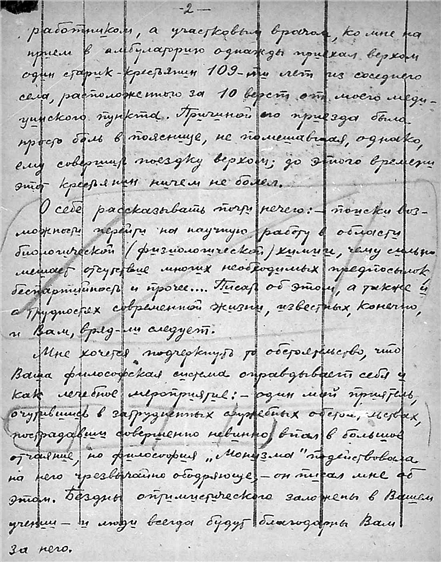 -2-
работником, а участковым врачом, ко мне на
прием в амбулаторию однажды приехал верхом
один старик-крестьянин 109-ти лет из соседнего
села, расположенного за 10 верст от моего меди-
цинского пункта. Причиной его приезда была
просто боль в пояснице, не помешавшая, однако,
ему совершить поездку верхом; до этого времени
этот крестьянин ничем не болел.
О себе рассказывать почти нечего: – поиски воз-
можности перейти на научную работу в области
биологической (физиологической) химии, чему сильно
мешает отсутствие многих необходимых предпосылок
беспартийность и прочее... Писать об этом, а также и
о трудностях современной жизни, известных, конечно,
и Вам, вряд-ли следует.
Мне хочется подчеркнуть то обстоятельство, что
Ваша философская система оправдывает себя и
как лечебное мероприятие: – один мой приятель,
очутившись в затрудненных служебных обстоятельствах,
пострадавши совершенно невинно, впал в большое
отчаяние, но философия „Монизма" подействовала
на него чрезвычайно ободряюще, – он писал мне об
этом. Бездны оптимистического заложены в Вашем
учении – и люди всегда будут благодарны Вам
за него.